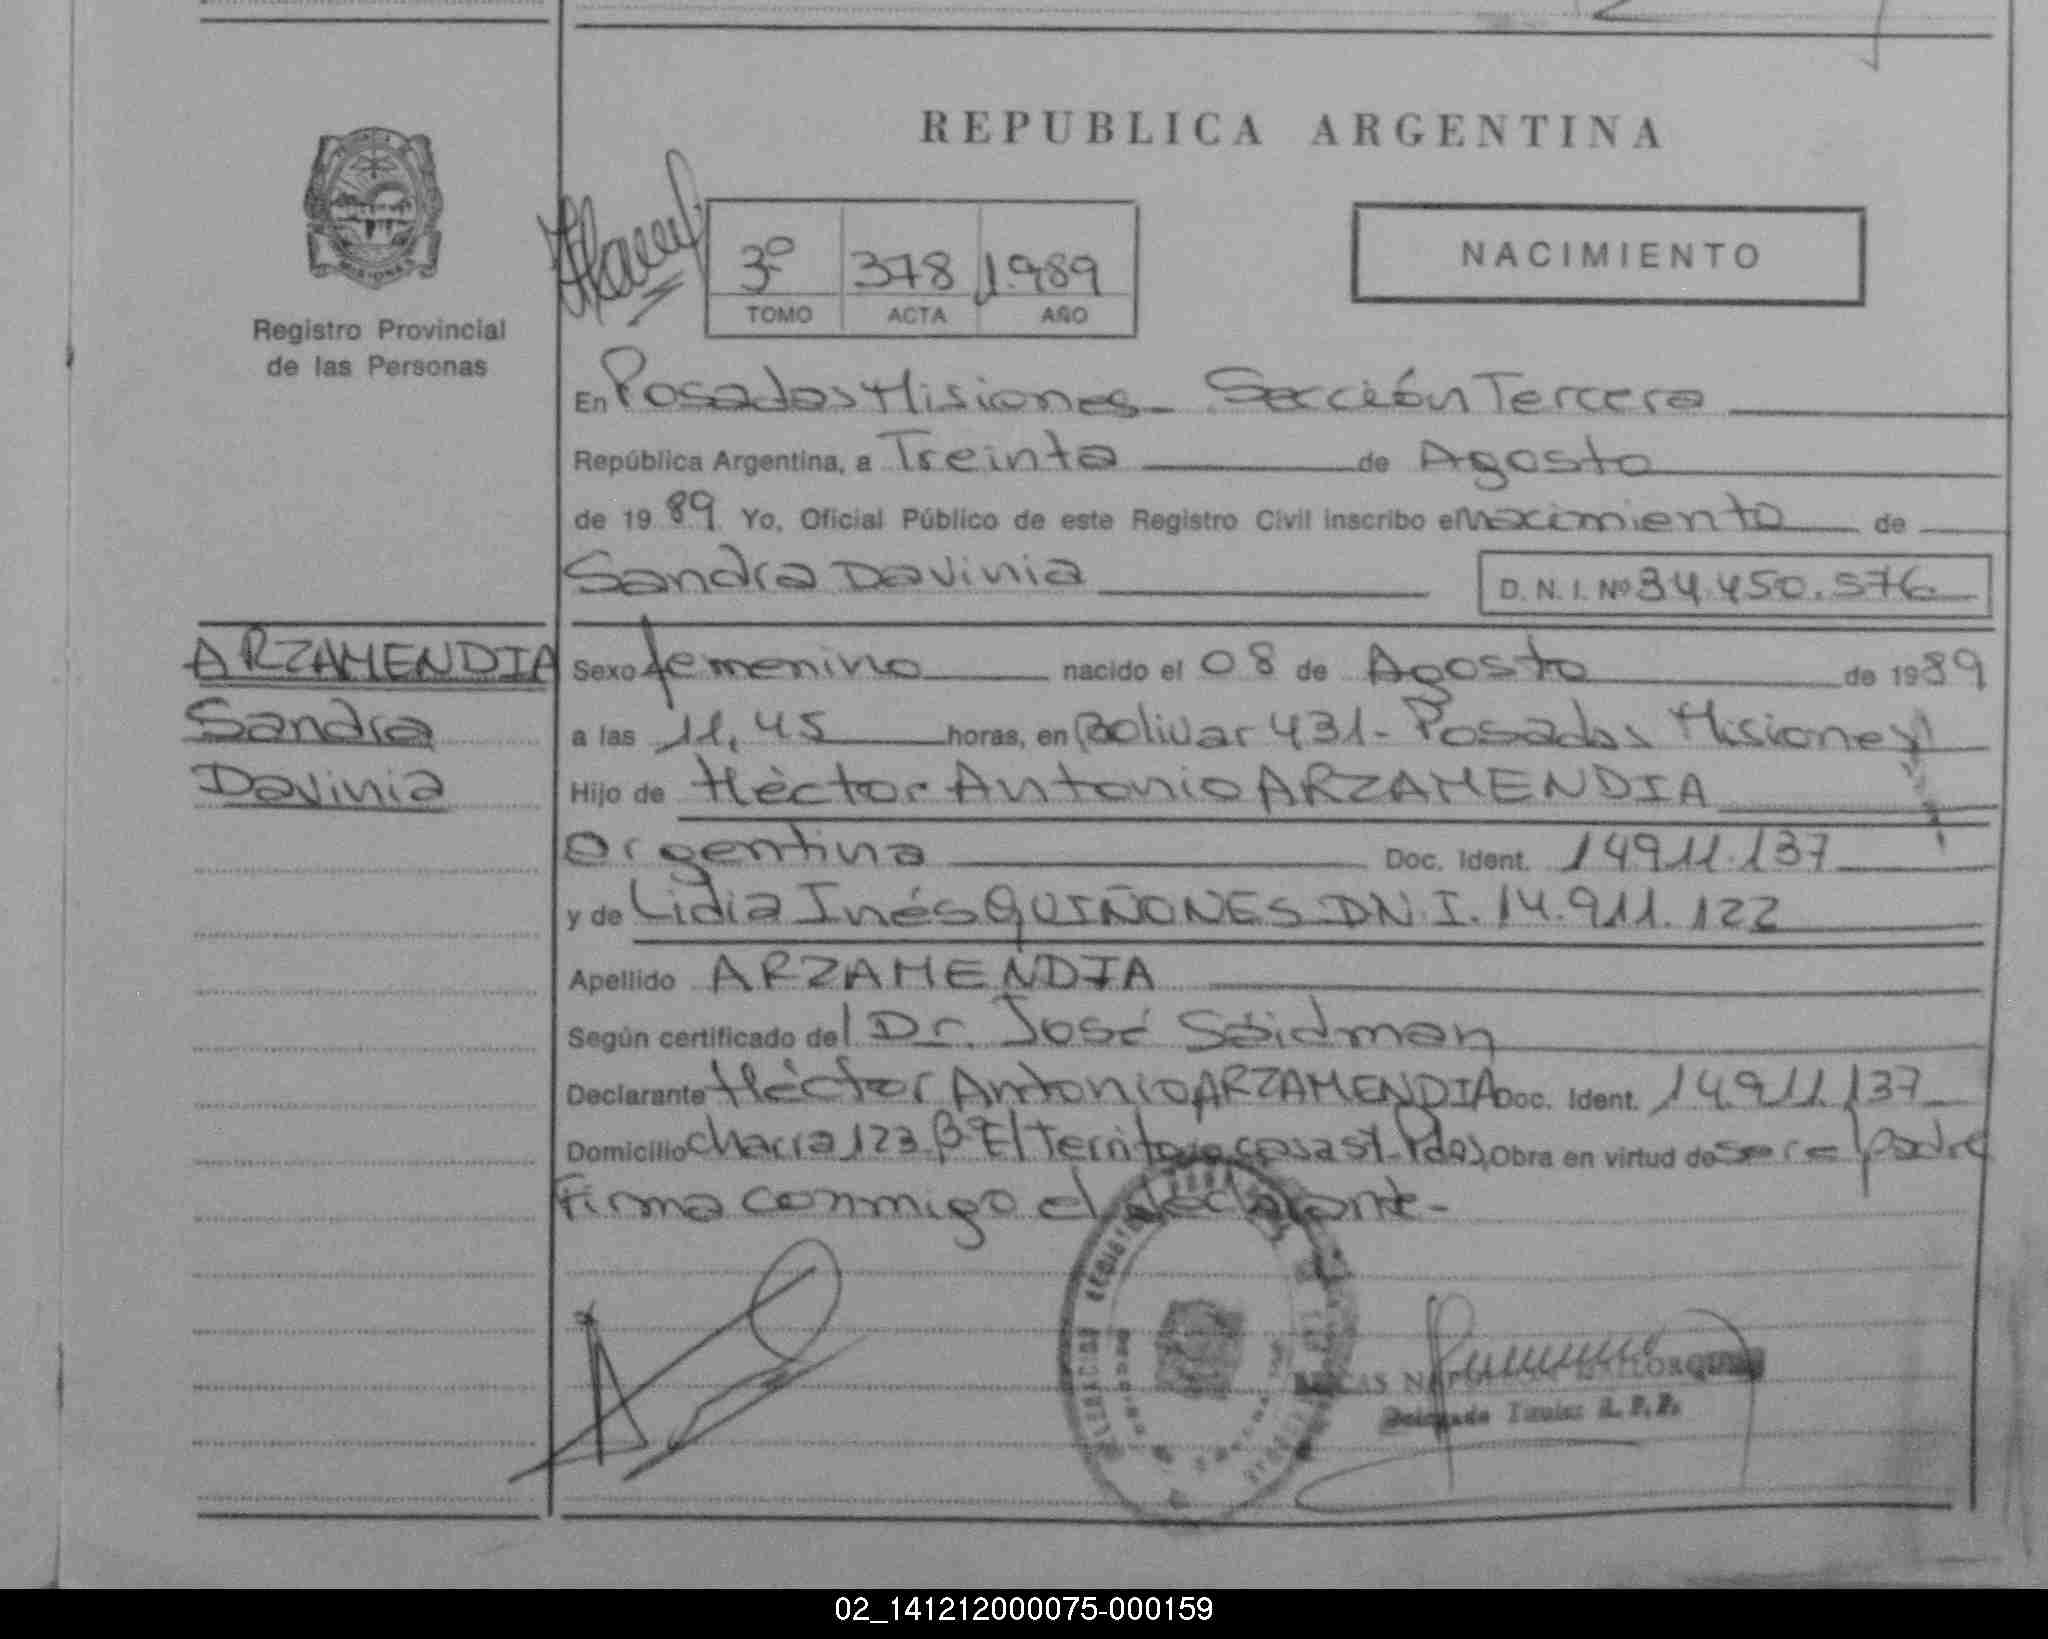 REPUBLICA ARGENTINA
MISIONES
Registro Provincial
de las Personas
3º 378 1989
TOMO ACTA AÑO
NACIMIENTO
En Posadas Misiones - Sección Tercera
República Argentina, a Treinta de Agosto
de 19 89 Yo, Oficial Público de este Registro Civil inscribo el nacimiento de
Sandra Davinia D. N. I. Nº 34.450.576
ARZAMENDIA
Sandra
Davinia
Sexo femenino nacido el 08 de Agosto de 1989
a las 11,45 horas, en Bolivar 431- Posadas Misiones
Hijo de Héctor Antonio ARZAMENDIA
Argentina Doc. Ident. 14911.137
y de Lidia Inés QUIÑONES D.N.I. 14.911.122
Apellido ARZAMENDIA
Según certificado del Dr. José Seidman
Declarante Héctor Antonio ARZAMENDIA Doc. Ident. 14.911.137
Domicilio chacra 123 Bº El Territorio casa 51 Pdas, Obra en virtud de ser el padre
Firma conmigo el declarante.-
Delegado Titular R. P. P.
02_141212000075-000159